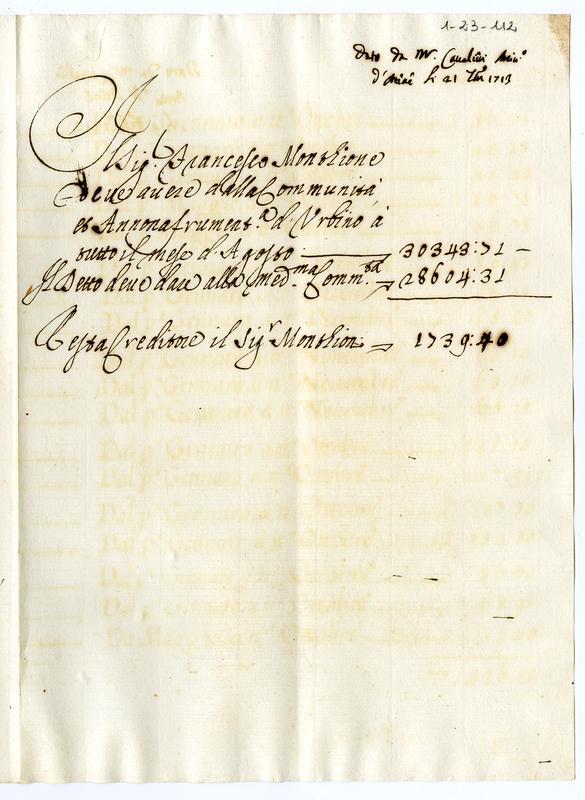 1-23-112
Dato da Mr. Cavalini
d' li 21 1713
Il Sig.r Francesco Montlione
deve avere dalla Communità
et Annona frument.a d'Urbino à
tutto il mese d'Agosto — 30343:71 —
Il Detto deve dare alla med.ma Comm.tà 28604:31
Resta Creditore il Sig.r Montlion: 1739:40